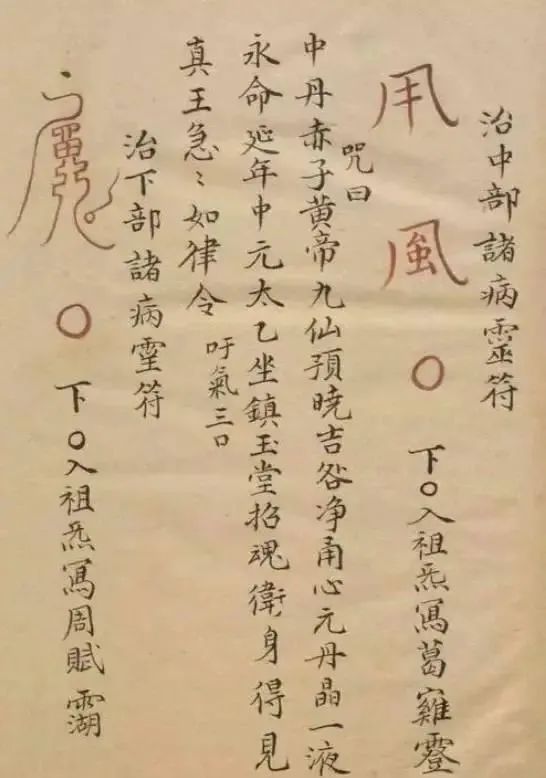 治中部諸病靈符
〇
下〇入祖炁寫葛雞
咒曰
中丹赤子黄帝九仙預曉吉咎净甬心元丹晶一液
永命延年中元太乙坐鎮玉堂招魂衛身得見
真王急〻如律令
吁氣三口
治下部諸病靈符
〇
下〇入祖炁寫周賦